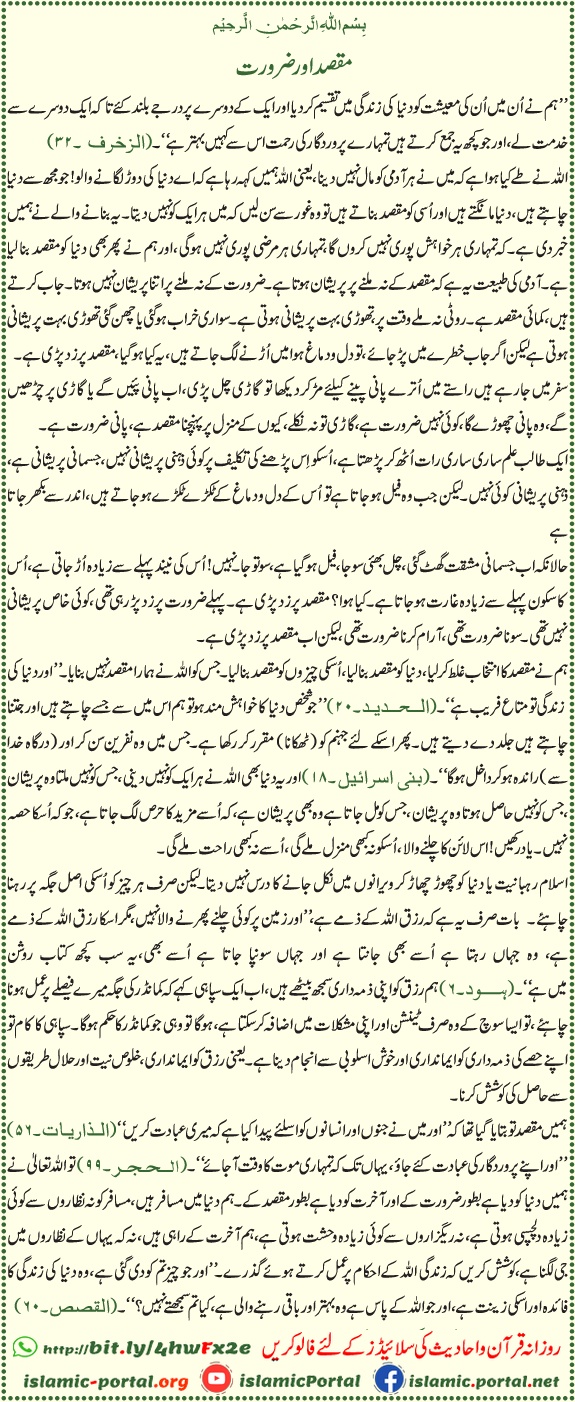 بِسْمِ اللّٰهِ الرَّحْمٰنِ الرَّحِيْمِ
مقصد اور ضرورت
”ہم نے اُن میں اُن کی معیشت کو دنیا کی زندگی میں تقسیم کر دیا اور ایک کے دوسرے پر درجے بلند کئے تاکہ ایک دوسرے سے
خدمت لے، اور جو کچھ یہ جمع کرتے ہیں تمہارے پروردگار کی رحمت اس سے کہیں بہتر ہے“۔ (الزخرف ۔۳۲)
اللہ نے طے کیا ہوا ہے کہ میں نے ہر آدمی کو مال نہیں دینا، یعنی اللہ ہمیں کہہ رہا ہے کہ اے دنیا کی دوڑ لگانے والو! جو مجھ سے دنیا
چاہتے ہیں، دنیا مانگتے ہیں اور اُسی کو مقصد بناتے ہیں تو وہ غور سے سن لیں کہ میں ہر ایک کو نہیں دیتا۔ یہ بنانے والے نے ہمیں
خبر دی ہے۔ کہ تمہاری ہر خواہش پوری نہیں کروں گا، تمہاری ہر مرضی پوری نہیں ہوگی، اور ہم نے پھر بھی دنیا کو مقصد بنا لیا
ہے۔ آدمی کی طبیعت یہ ہے کہ مقصد کے نہ ملنے پر پریشان ہوتا ہے۔ ضرورت کے نہ ملنے پر اتنا پریشان نہیں ہوتا۔ جاب کرتے
ہیں، کمائی مقصد ہے۔ روٹی نہ ملے وقت پر، تھوڑی بہت پریشانی ہوتی ہے۔ سواری خراب ہوگئی یا چھن گئی تھوڑی بہت پریشانی
ہوتی ہے لیکن اگر جاب خطرے میں پڑ جائے، تو دل و دماغ ہوا میں اُڑنے لگ جاتے ہیں، یہ کیا ہو گیا، مقصد پر زد پڑی ہے۔
سفر میں جا رہے ہیں راستے میں اُترے پانی پینے کیلئے مڑ کر دیکھا تو گاڑی چل پڑی، اب پانی پئیں گے یا گاڑی پر چڑھیں
گے، وہ پانی چھوڑے گا، کوئی نہیں ضرورت ہے، گاڑی تو نہ نکلے، کیوں کے منزل پر پہنچنا مقصد ہے، پانی ضرورت ہے۔
ایک طالب علم ساری ساری رات اُٹھ کر پڑھتا ہے، اُسکو اِس پڑھنے کی تکلیف پر کوئی ذہنی پریشانی نہیں، جسمانی پریشانی ہے،
ذہنی پریشانی کوئی نہیں۔ لیکن جب وہ فیل ہو جاتا ہے تو اُس کے دل و دماغ کے ٹکڑے ٹکڑے ہو جاتے ہیں، اندر سے بکھر جاتا
ہے
حالانکہ اب جسمانی مشقت گھٹ گئی، چل بھئی سو جا، فیل ہو گیا ہے، سو تو جا۔ نہیں! اُس کی نیند پہلے سے زیادہ اُڑ جاتی ہے، اُس
کا سکون پہلے سے زیادہ غارت ہو جاتا ہے۔ کیا ہوا؟ مقصد پر زد پڑی ہے۔ پہلے ضرورت پر زد پڑ رہی تھی، کوئی خاص پریشانی
نہیں تھی۔ سونا ضرورت تھی، آرام کرنا ضرورت تھی، لیکن اب مقصد پر زد پڑی ہے۔
ہم نے مقصد کا انتخاب غلط کر لیا، دنیا کو مقصد بنا لیا، اُسکی چیزوں کو مقصد بنا لیا۔ جس کو اللہ نے ہمارا مقصد نہیں بنایا۔ ”اور دنیا کی
زندگی تو متاع فریب ہے“۔ (الحدید۔۲۰) ”جو شخص دنیا کا خواہش مند ہو تو ہم اس میں سے جسے چاہتے ہیں اور جتنا
چاہتے ہیں جلد دے دیتے ہیں۔ پھر اسکے لئے جہنم کو (ٹھکانا) مقرر کر رکھا ہے۔ جس میں وہ نفرین سن کر اور (درگاہ خدا
سے) راندہ ہو کر داخل ہوگا“۔ (بنی اسرائیل۔۱۸) اور یہ دنیا بھی اللہ نے ہر ایک کو نہیں دینی، جس کو نہیں ملتا وہ پریشان
،جس کو نہیں حاصل ہوتا وہ پریشان ، جس کو مل جاتا ہے وہ بھی پریشان ہے، کہ اُسے مزید کا حرص لگ جاتا ہے، جو کہ اُسکا حصہ
نہیں۔ یاد رکھیں! اس لائن کا چلنے والا، اُسکو نہ کبھی منزل ملے گی، اُسے نہ کبھی راحت ملے گی۔
اسلام رہبانیت یا دنیا کو چھوڑ چھاڑ کر ویرانوں میں نکل جانے کا درس نہیں دیتا۔ لیکن صرف ہر چیز کو اُسکی اصل جگہ پر رہنا
چاہئے۔ بات صرف یہ ہے کہ رزق اللہ کے ذمے ہے، ”اور زمین پر کوئی چلنے پھرنے والا نہیں، مگر اسکا رزق اللہ کے ذمے
ہے، وہ جہاں رہتا ہے اُسے بھی جانتا ہے اور جہاں سونپا جاتا ہے اُسے بھی، یہ سب کچھ کتاب روشن
میں ہے“۔ (ہود۔۶) ہم رزق کو اپنی ذمہ داری سمجھ بیٹھے ہیں، اب ایک سپاہی کہے کہ کمانڈر کی جگہ میرے فیصلے پر عمل ہونا
چاہئے، تو ایسا سوچ کے وہ صرف ٹینشن اور اپنی مشکلات میں اضافہ کر سکتا ہے، ہوگا تو وہی جو کمانڈر کا حکم ہوگا۔ سپاہی کا کام تو
اپنے حصے کی ذمہ داری کو ایمانداری اور خوش اسلوبی سے انجام دینا ہے۔ یعنی رزق کو ایمانداری، خلوص نیت اور حلال طریقوں
سے حاصل کی کوشش کرنا۔
ہمیں مقصد تو بتایا گیا تھا کہ ”اور میں نے جنوں اور انسانوں کو اسلئے پیدا کیا ہے کہ میری عبادت کریں“ (الذاریات۔۵۶)
”اور اپنے پروردگار کی عبادت کئے جاؤ، یہاں تک کہ تمہاری موت کا وقت آ جائے“۔ (الحجر۔۹۹) تو اللہ تعالیٰ نے
ہمیں دنیا کو دیا ہے بطور ضرورت کے اور آخرت کو دیا ہے بطور مقصد کے۔ ہم دنیا میں مسافر ہیں، مسافر کو نہ نظاروں سے کوئی
زیادہ دلچسپی ہوتی ہے، نہ ریگزاروں سے کوئی زیادہ وحشت ہوتی ہے، ہم آخرت کے راہی ہیں، نہ کہ یہاں کے نظاروں میں
جی لگنا ہے، کوشش کریں کہ زندگی اللہ کے احکام پر عمل کرتے ہوئے گذرے۔ ”اور جو چیز تم کو دی گئی ہے، وہ دنیا کی زندگی کا
فائدہ اور اسکی زینت ہے، اور جو اللہ کے پاس ہے وہ بہتر اور باقی رہنے والی ہے، کیا تم سمجھتے نہیں؟“۔ (القصص۔۶۰)
روزانہ قرآن و احادیث کی سلائیڈز کے لئے فالو کریں http://bit.ly/4hwFx2e
islamic-portal.org islamicPortal islamic-portal.net